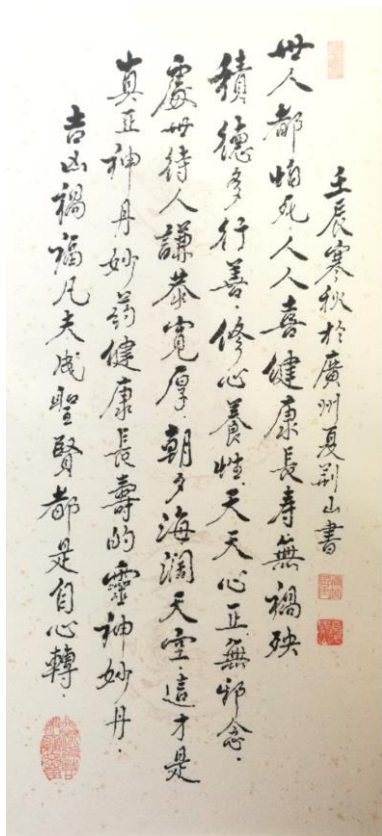 壬辰寒秋於廣州夏荆山書
世人都怕死.人人喜健康長寿無禍殃
積德多行善.修心養性.天天心正無邪念.
處世待人謙恭寬厚.朝夕海濶天空.這才是
真正神丹妙药健康長壽的靈神妙丹.
吉凶禍福凡夫成聖賢都是自心轉.